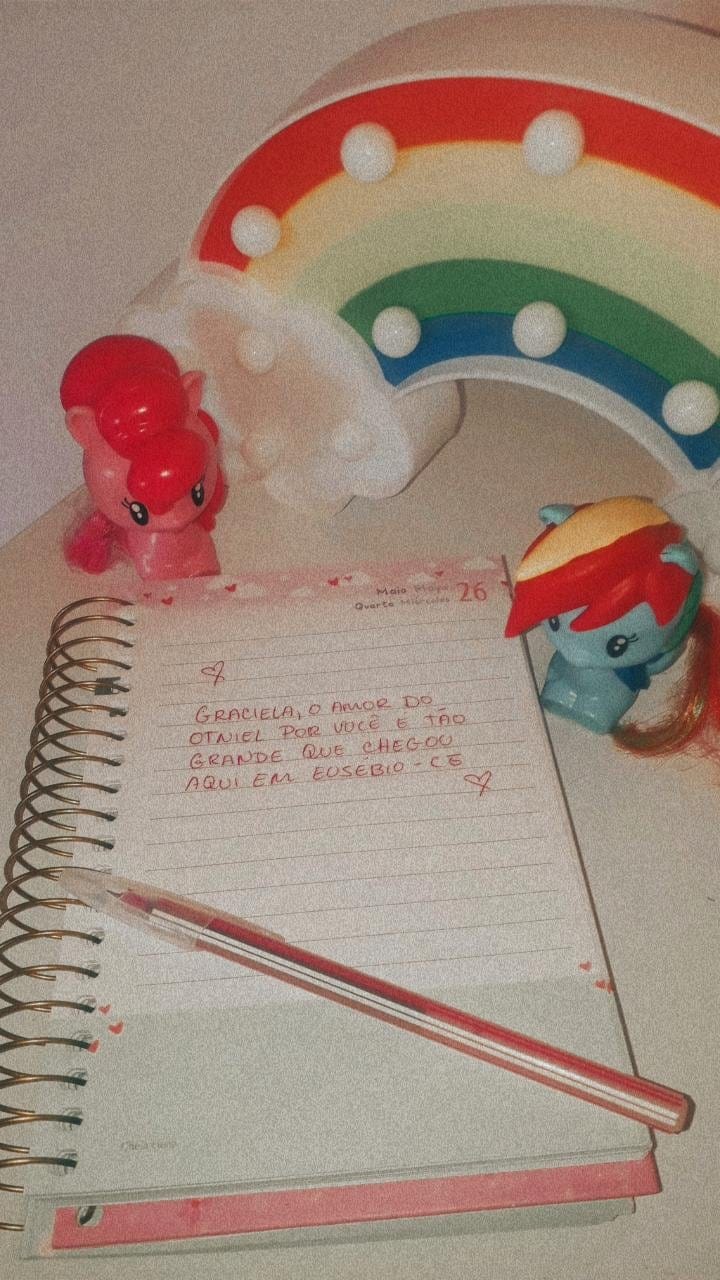 Maio Mayo 26
Quarta Miércoles
GRACIELA, O AMOR DO
OTNIEL POR VOCÊ E TÃO
GRANDE QUE CHEGOU
AQUI EM EUSEBIO - CE